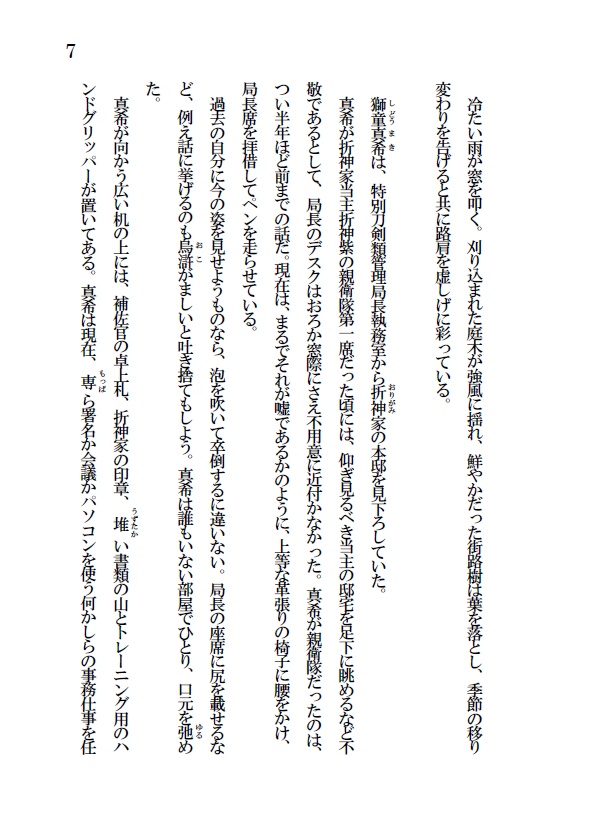 7
冷たい雨が窓を叩く。刈り込まれた庭木が強風に揺れ、鮮やかだった街路樹は葉を落とし、季節の移り
変わりを告げると共に路肩を虚しげに彩っている。
獅童真希は、特別刀剣類管理局長執務室から折神家の本邸を見下ろしていた。
しどうまき
おりがみ
真希が折神家当主折神紫の親衛隊第一席だった頃には、仰ぎ見るべき当主の邸宅を足下に眺めるなど不
敬であるとして、局長のデスクはおろか窓際にさえ不用意に近付かなかった。真希が親衛隊だったのは、
つい半年ほど前までの話だ。現在は、まるでそれが嘘であるかのように、上等な革張りの椅子に腰をかけ、
局長席を拝借してペンを走らせている。
過去の自分に今の姿を見せようものなら、泡を吹いて卒倒するに違いない。局長の座席に尻を載せるな
ど、例え話に挙げるのも烏滸がましいと吐き捨てもしよう。真希は誰もいない部屋でひとり、口元を弛め
おこ
ゆる
た。
真希が向かう広い机の上には、補佐官の卓上札、折神家の印章、堆い書類の山とトレーニング用のハ
うずたか
ンドグリッパーが置いてある。真希は現在、専ら署名か会議かパソコンを使う何かしらの事務仕事を任
もっぱ